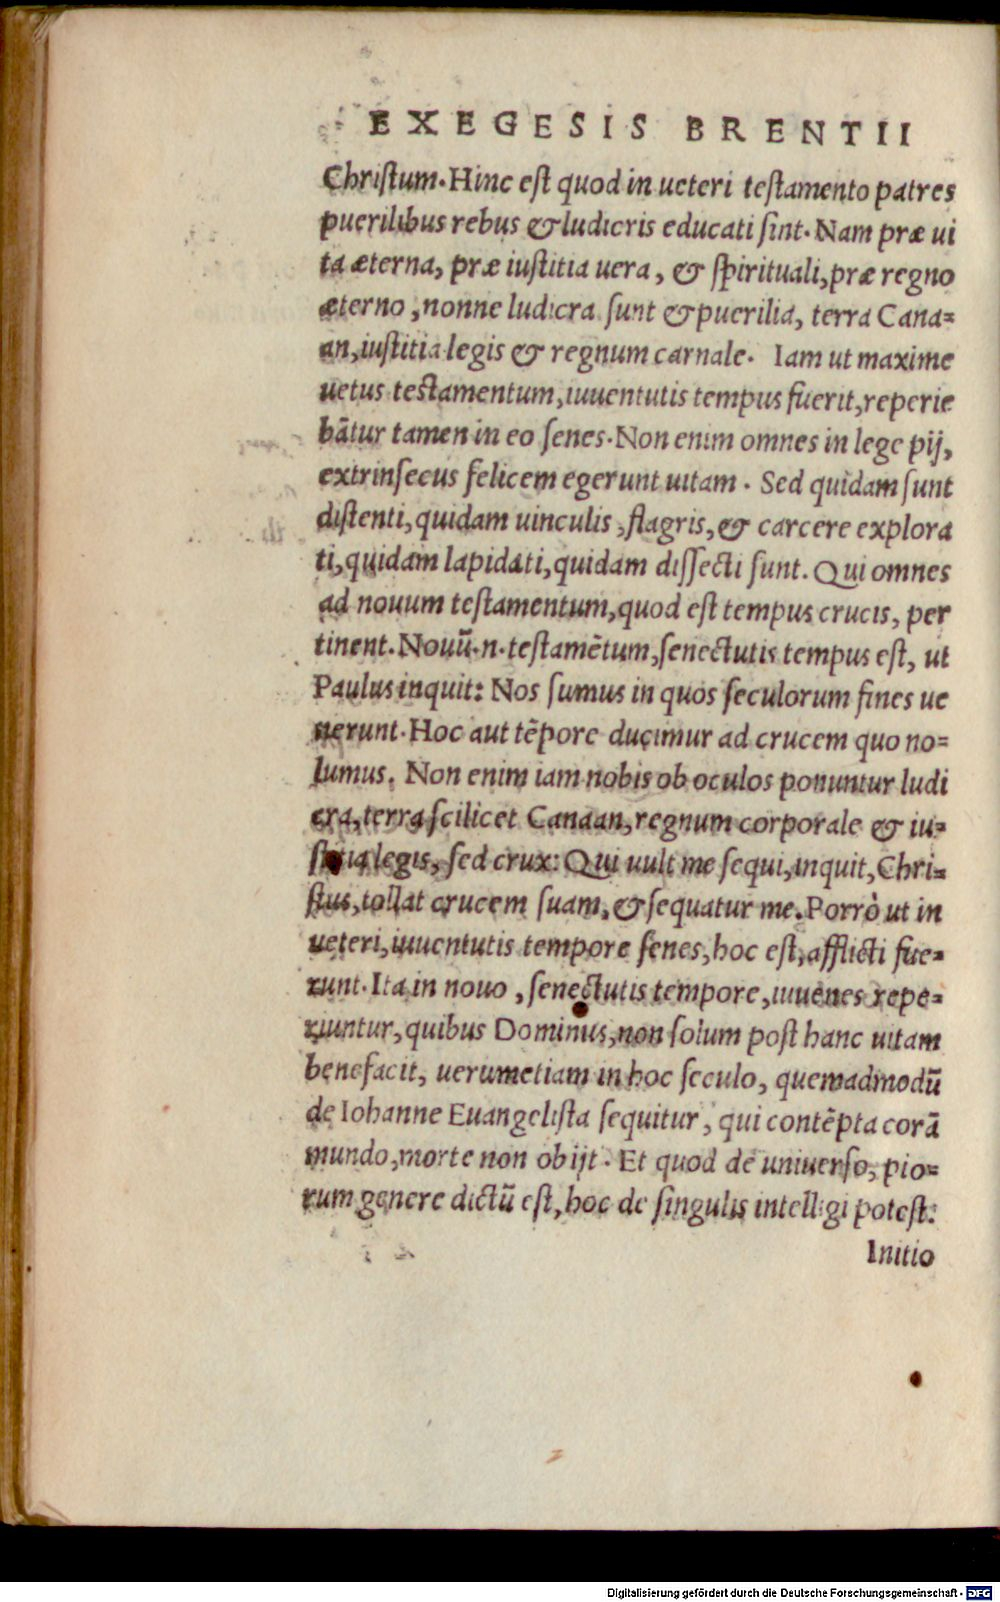 EXEGESIS BRENTII
Christum. Hinc est quod in ueteri testamento patres
puerilibus rebus & ludicris educati sint. Nam præ ui
ta æterna, præ iustitia uera, & spirituali, præ regno
æterno, nonne ludicra sunt & puerilia, terra Cana=
an, iustitia legis & regnum carnale. Iam ut maxime
uetus testamentum, iuuentutis tempus fuerit, reperie
bãtur tamen in eo senes. Non enim omnes in lege pij,
extrinsecus felicem egerunt uitam. Sed quidam sunt
distenti, quidam uinculis, flagris, & carcere explora
ti, quidam lapidati, quidam dissecti sunt. Qui omnes
ad nouum testamentum, quod est tempus crucis, per
tinent. Nouũ .n. testamẽtum, senectutis tempus est, ut
Paulus inquit: Nos sumus in quos seculorum fines ue
nerunt. Hoc aut tẽpore ducimur ad crucem quo no=
lumus. Non enim iam nobis ob oculos ponuntur ludi
cra, terra scilicet Canaan, regnum corporale & iu=
stitia legis, sed crux: Qui uult me sequi, inquit, Chri=
stus, tollat crucem suam, & sequatur me. Porrò ut in
ueteri, iuuentutis tempore senes, hoc est, afflicti fue=
runt. Ita in nouo, senectutis tempore, iuuenes repe=
riuntur, quibus Dominus, non solum post hanc uitam
benefacit, uerumetiam in hoc seculo, quemadmodũ
de Iohanne Euangelista sequitur, qui contẽpta corã
mundo, morte non obijt. Et quod de uniuerso, pio=
rum genere dictũ est, hoc de singulis intelligi potest.
Initio
Digitalisierung gefördert durch die Deutsche Forschungsgemeinschaft - DFG